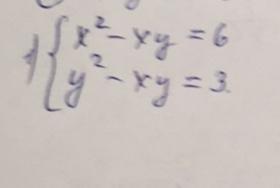 1) { x² - xy = 6
y² - xy = 3.